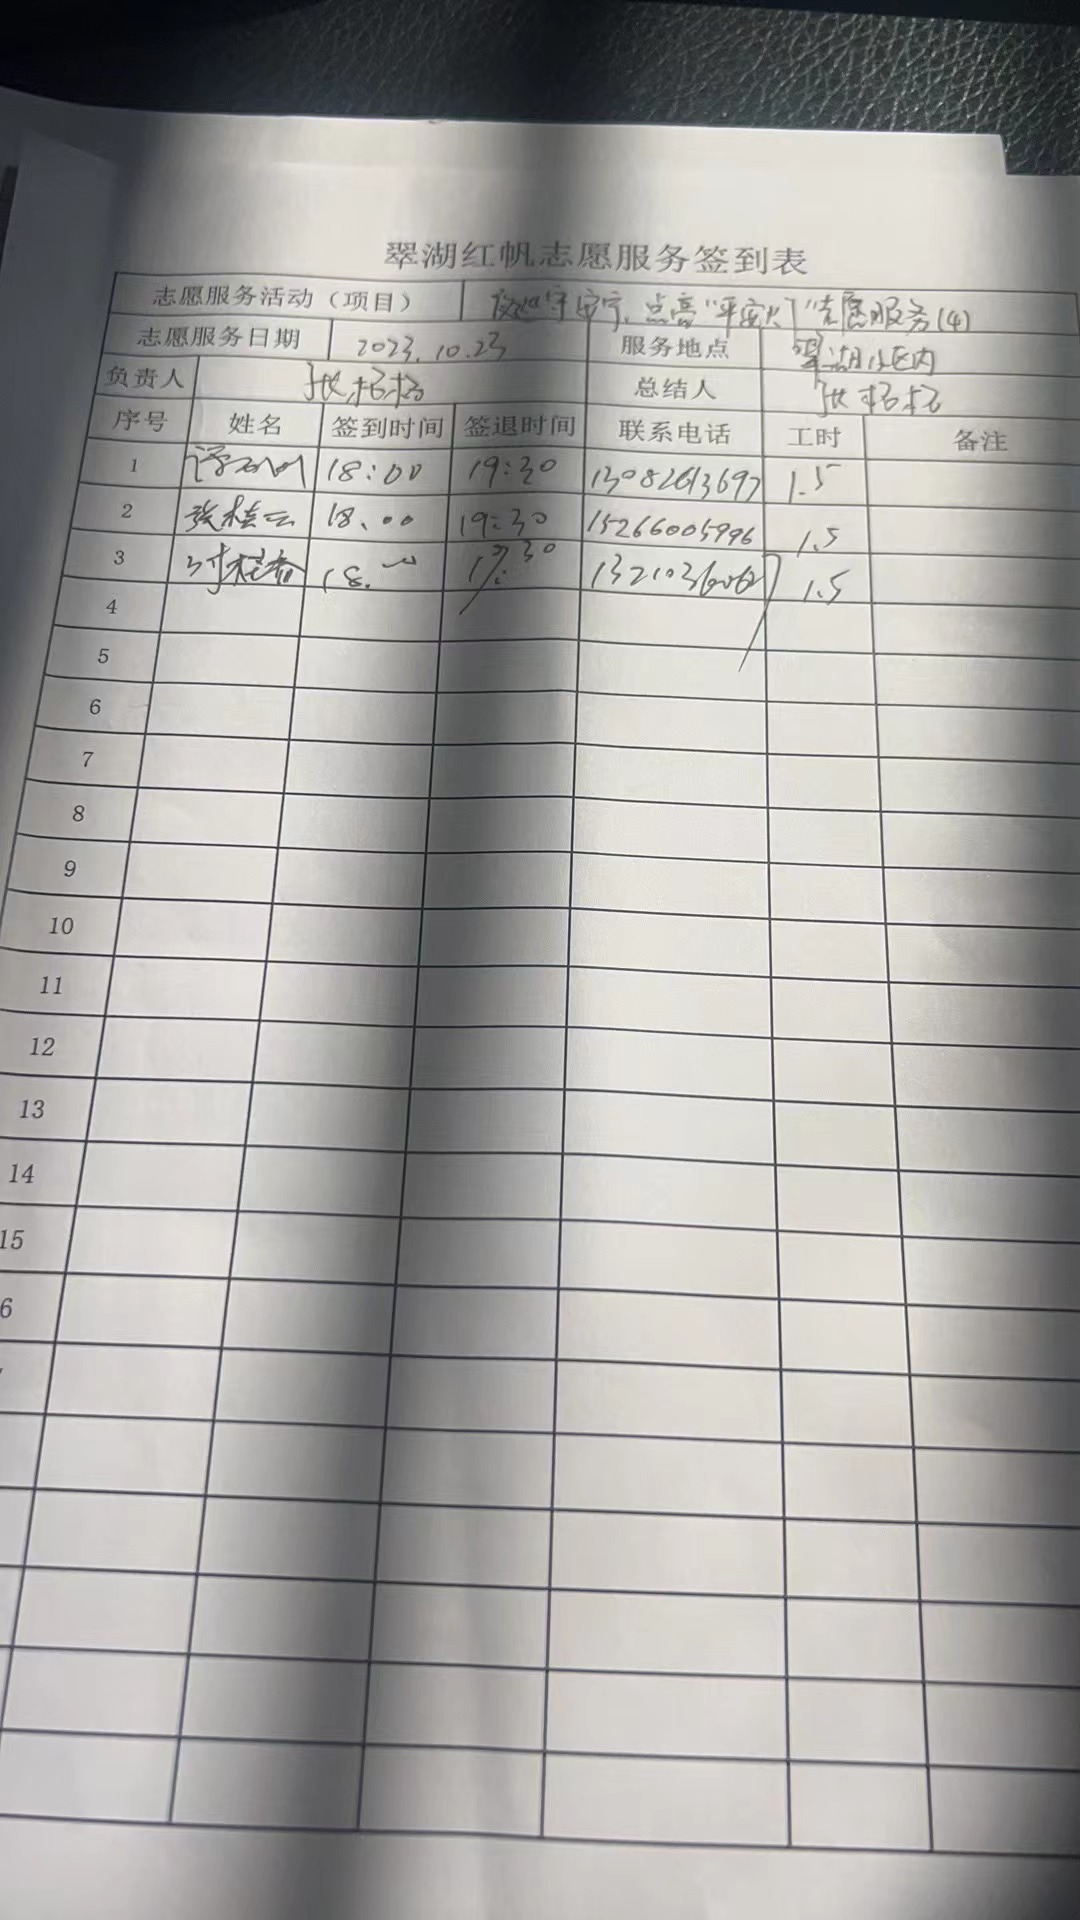 翠湖红帆志愿服务签到表
志愿服务活动（项目） 夜巡守安宁,点亮"平安灯"志愿服务(4)
志愿服务日期 2023.10.23 服务地点 翠湖小区内
负责人 张杨杨 总结人 张杨杨
序号 姓名 签到时间 签退时间 联系电话 工时 备注
1 18:00 19:30 13082613697 1.5
2 张桂云 18:00 19:30 15266005996 1.5
3 18. 19:30 1.5
4
5
6
7
8
9
10
11
12
13
14
15
6